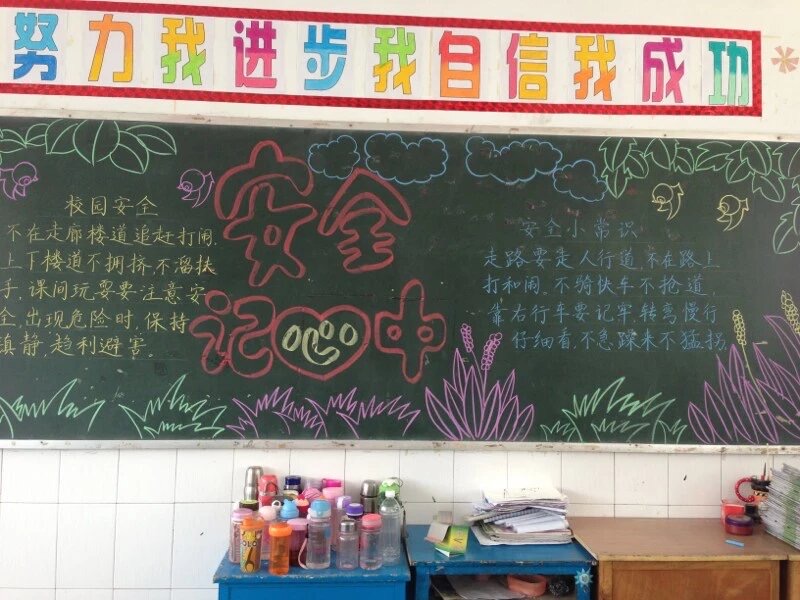 努力我进步我自信我成功
安全
记心中
校园安全
不在走廊楼道追赶打闹.
上下楼道不拥挤,不溜扶
手,课间玩耍要注意安
全,出现危险时,保持
镇静,趋利避害。
安全小常识:
走路要走人行道,不在路上
打和闹.不骑快车不抢道,
靠右行车要记牢,转弯慢行
仔细看,不急躁来不猛拐.